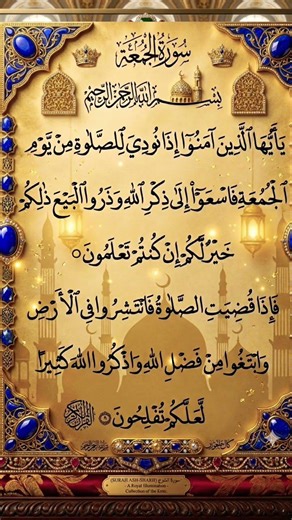 سُورَةُ الْجُمُعَةِ
بِسْمِ اللَّهِ الرَّحْمَٰنِ الرَّحِيمِ
يَا أَيُّهَا الَّذِينَ آمَنُوٓا إِذَا نُودِيَ لِلصَّلَوٰةِ مِنْ يَّوْمِ
الْجُمُعَةِ فَاسْعَوْا إِلَىٰ ذِكْرِ اللَّهِ وَذَرُوا الْبَيْعَ ذَٰلِكُمْ
خَيْرٌ لَّكُمْ إِنْ كُنتُمْ تَعْلَمُونَ
فَإِذَا قُضِيَتِ الصَّلَوٰةُ فَانتَشِرُوا فِي الْأَرْضِ
وَابْتَغُوا مِنْ فَضْلِ اللَّهِ وَاذْكُرُوا اللَّهَ كَثِيرًا
لَّعَلَّكُمْ تُفْلِحُونَ
(SURAH ASH-SHARH)
A Royal Illumination
Collection of the